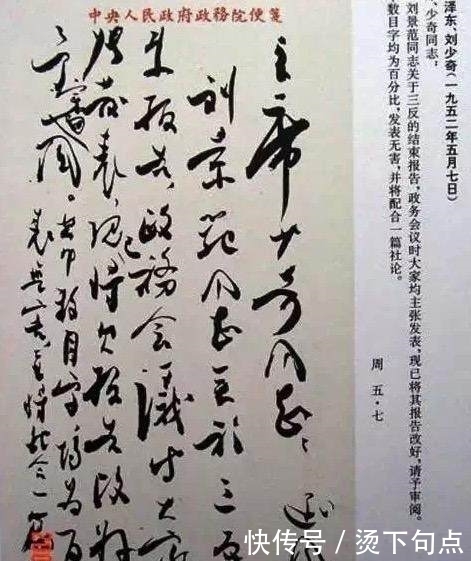 中央人民政府政务院便笺
泽东、刘少奇(一九五二年五月七日)
、少奇同志:
刘景范同志关于三反的结束报告,政务会议时大家均主张发表,现已将其报告改好,请予审阅。
数目字均为百分比,发表无害,并将配合一篇社论。
周 五·七
主席少奇同志:
刘景范同志关于三反
束报告,政务会议时大家
张发表,现已将其报告改好
予审阅。其中数目字均为百
表无害,并将配合一篇
快传号 / 烫下句点